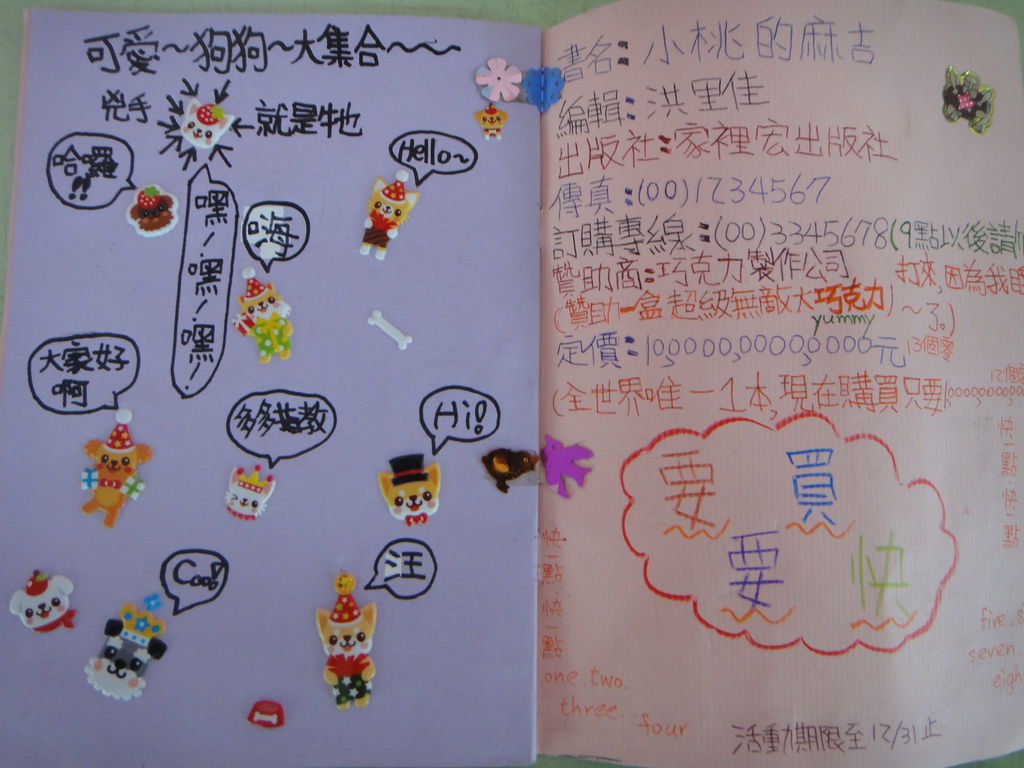 可愛～狗狗～大集合～～～
兇手
就是牠
哈囉!!
Hello~
嘿!嘿!嘿!
嗨
大家好
啊
多多指教
Hi!
Cool!
汪
書名:小桃的麻吉
編輯:洪里佳
出版社:家裡宏出版社
傳真:(00)1234567
訂購專線:(00)3345678(9點以後請
打來,因為我
～了。)
贊助商:巧克力製作公司
(贊助一盒超級無敵大巧克力)
yummy
定價:10,000,000,000,000元
13個零
(全世界唯一1本,現在購買只要
12個零
快一點快一點
要買
要快
快一點快一點
one.two.
three.
four
five.
seven.
eigh
活動期限至12/31止